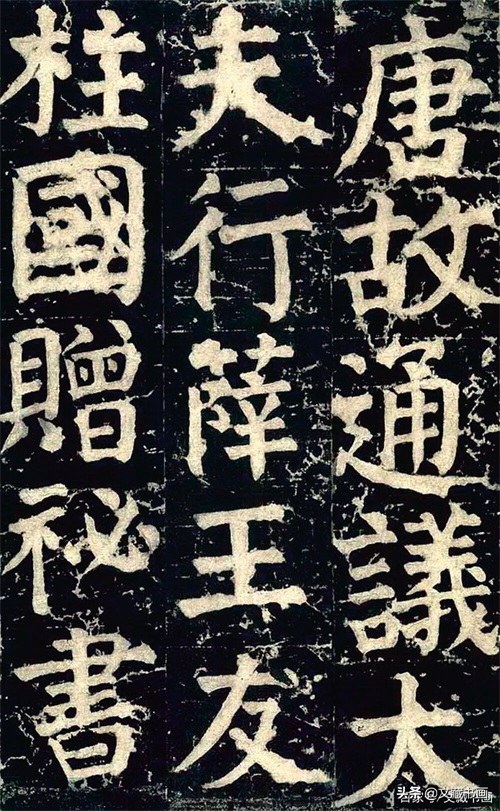 唐故通議大
夫行薛王友
柱國贈秘書
头条@文藏书画